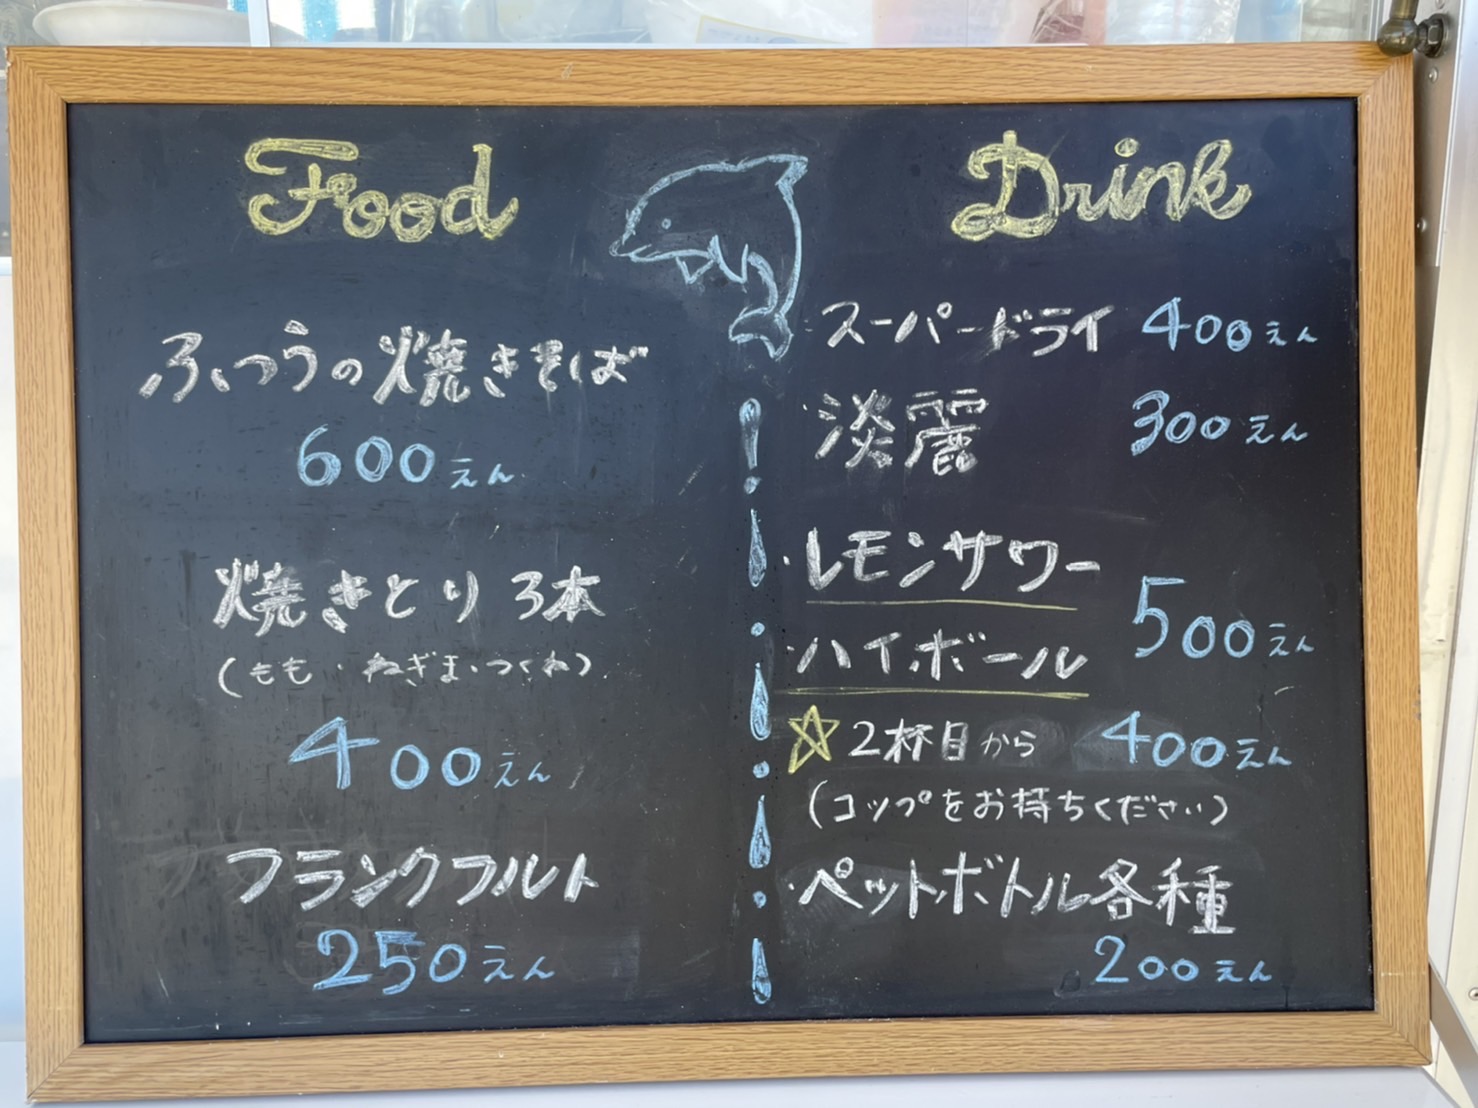 Food
ふつうの焼きそば
600えん
焼きとり3本
(もも・ねぎま・つくね)
400えん
フランクフルト
250えん
Drink
・スーパードライ 400えん
・淡麗 300えん
・レモンサワー
・ハイボール 500えん
☆2杯目から 400えん
(コップをお持ちください)
・ペットボトル各種
200えん